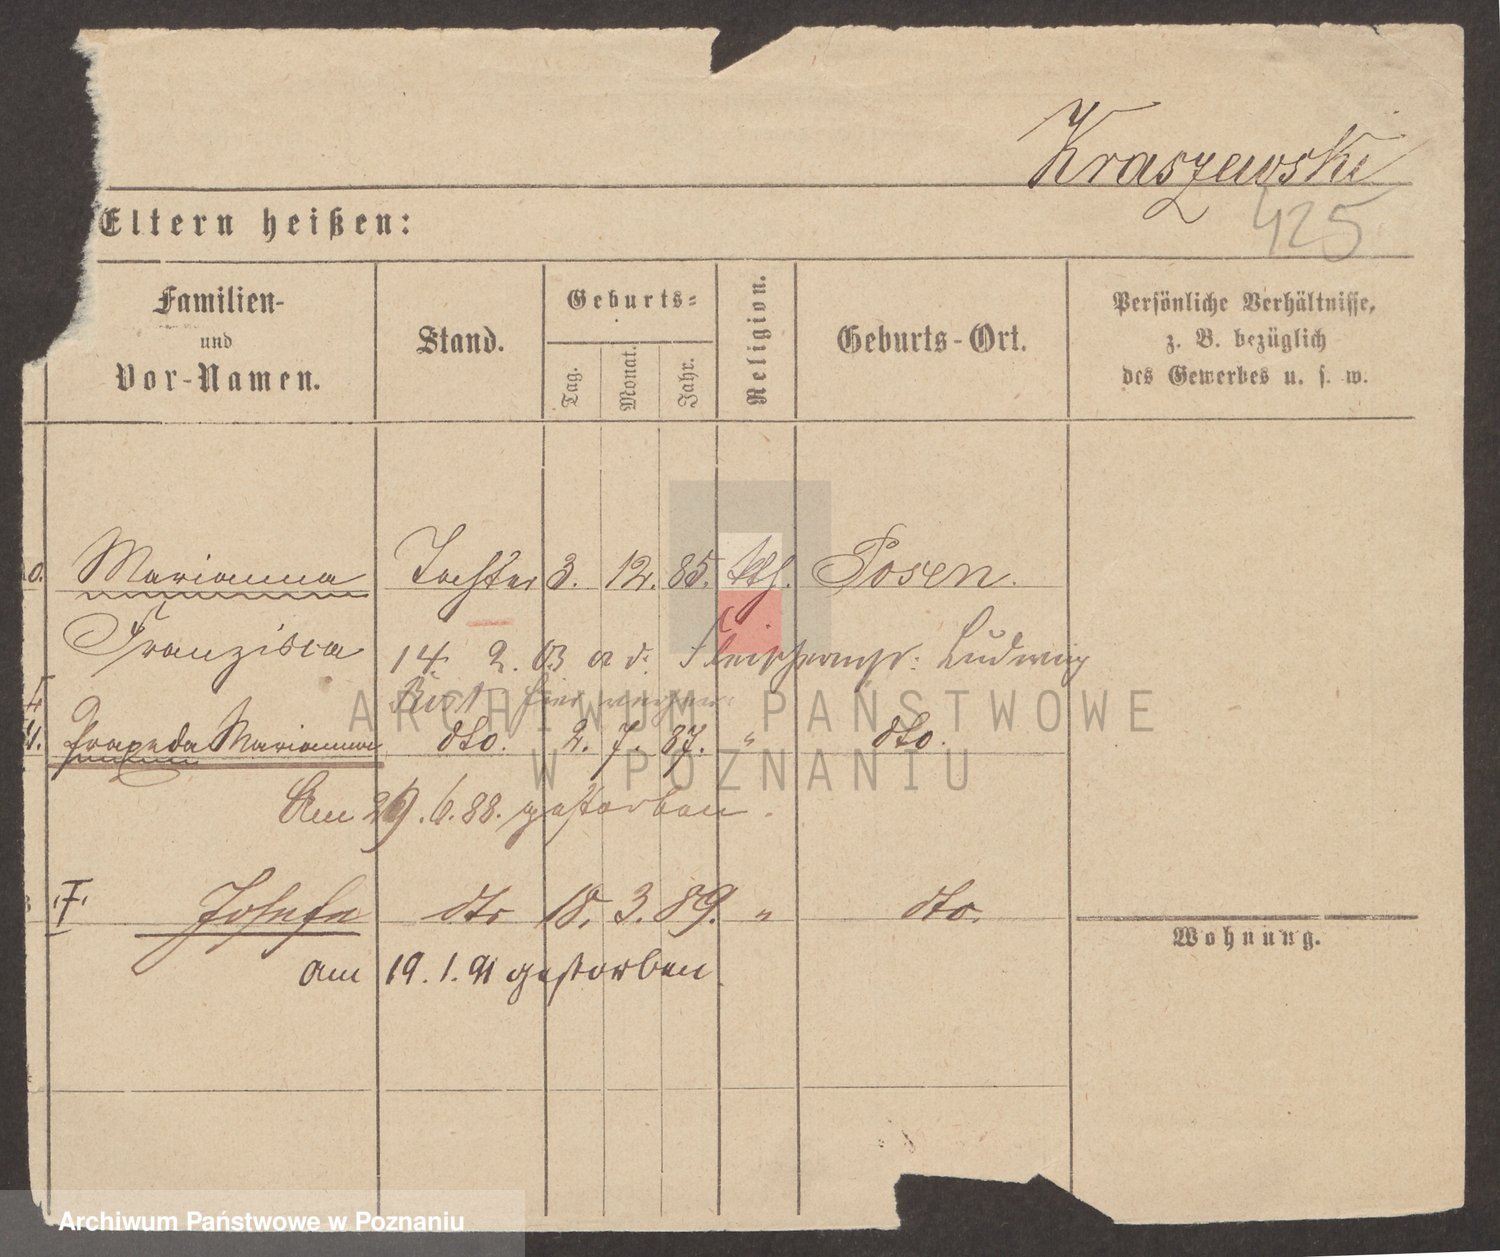 Kraszewski
425
Eltern heißen:
Familien-
und
Vor-Namen.
Stand.
Geburts-
Tag.
Monat.
Jahr.
Religion.
Geburts-Ort.
Persönliche Verhältnisse,
z. B. bezüglich
des Gewerbes u. s. w.
Marianna Tochter 3. 12. 85. kth. Posen.
Franzisca 14. 2. 03 Fleischermstr: Ludwig
Marianna dto. 2. 7. 87. " dto.
Am 29. 6. 88. gestorben.
Josefa dto 18. 3. 89. " dto.
am 19. 1. 91 gestorben.
Wohnung.
ARCHIWUM PAŃSTWOWE
W POZNANIU
Archiwum Państwowe w Poznaniu